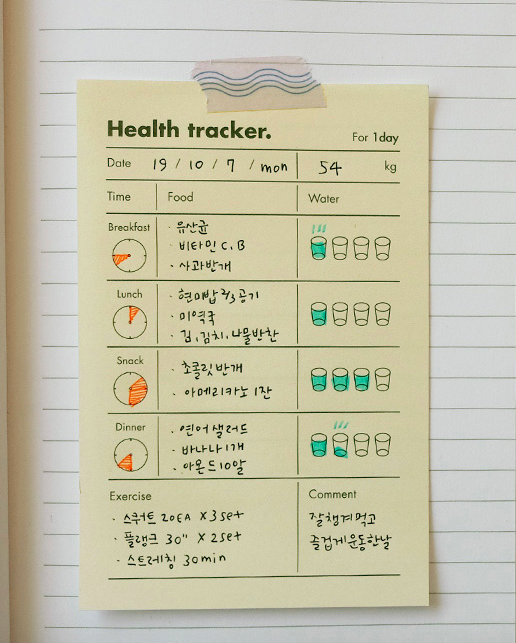 Health tracker.
For 1day
Date 19 / 10 / 7 / mon 54 kg
Time Food Water
Breakfast
· 유산균
· 비타민 C, B
· 사과반개
Lunch
· 현미밥 2/3 공기
· 미역국
· 김, 김치, 나물반찬
Snack
· 초콜릿반개
· 아메리카노 1잔
Dinner
· 연어샐러드
· 바나나 1개
· 아몬드 10알
Exercise
· 스쿼트 20EA X 3set
· 플랭크 30" X 2set
· 스트레칭 30min
Comment
잘챙겨먹고
즐겁게운동한날